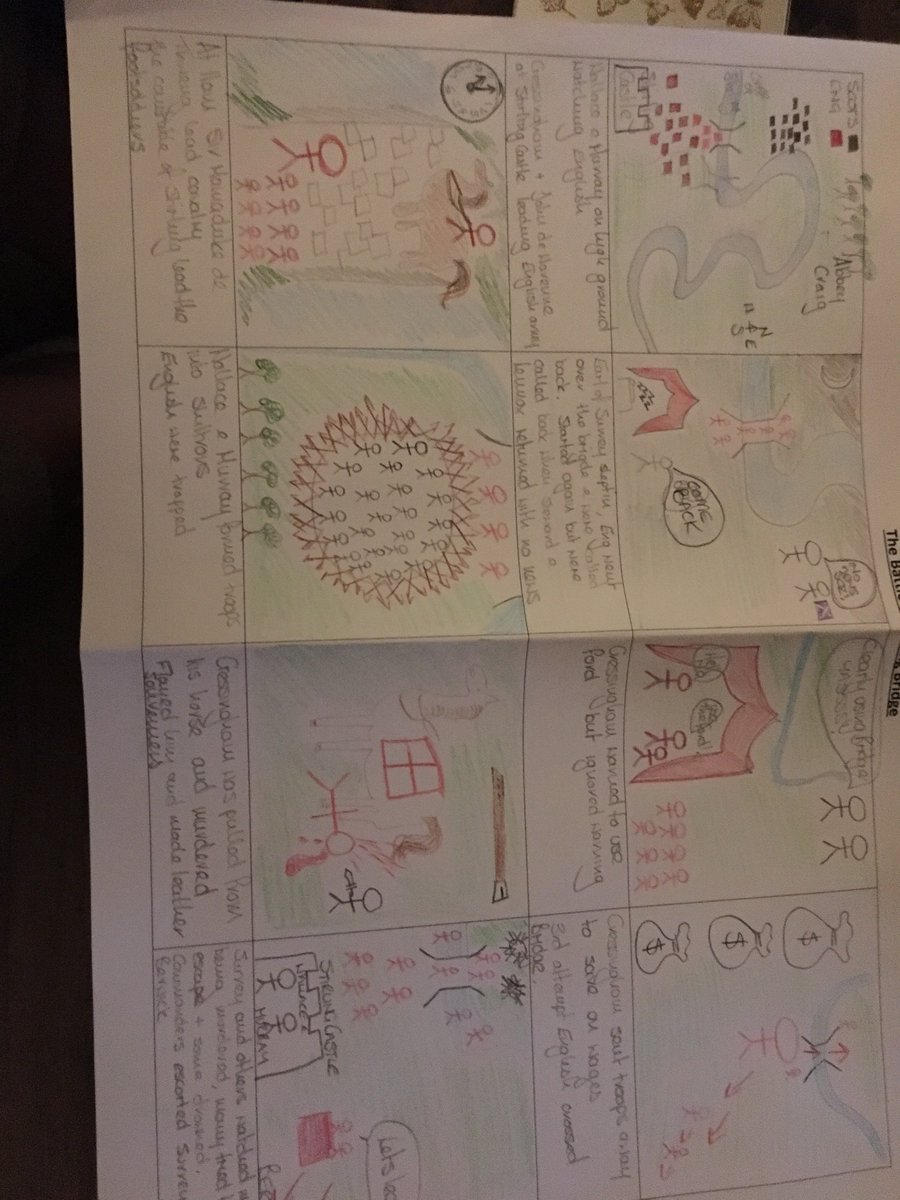 The Battle
Bridge
Scots
Eng
Abbey
Craig
N
E
S
Stirling
Castle
Wallace & Murray on high ground
watching English
Cressingham + John de Warenne
at Stirling Castle leading English army
COME
BACK
No
news
Earl of Surrey sleptin, Eng went
over the brigde & were called
back. Started again but were
called back when Steward &
Lennox returned with no news
Clearly using bridge
Help
Cressingham wanted to use
ford but ignored warning
$
$
$
Cressingham sent troops away
to save on wages
3rd attempt English crossed
bridge.
At 11am Sir Marmaduke de
Thweng lead cavalry
the constable of Stirling lead the
footsoldiers
Wallace & Murray formed troops
into shiltrons
English were trapped
Cressingham was pulled from
his horse and murdered
Flayed him and made leather
souveneirs
STIRLING CASTLE
WALLACE
MURRAY
Lets
Surrey and others watched
being murdered, many tried
escape + some drowned.
Commanders escorted Surrey
Berwick